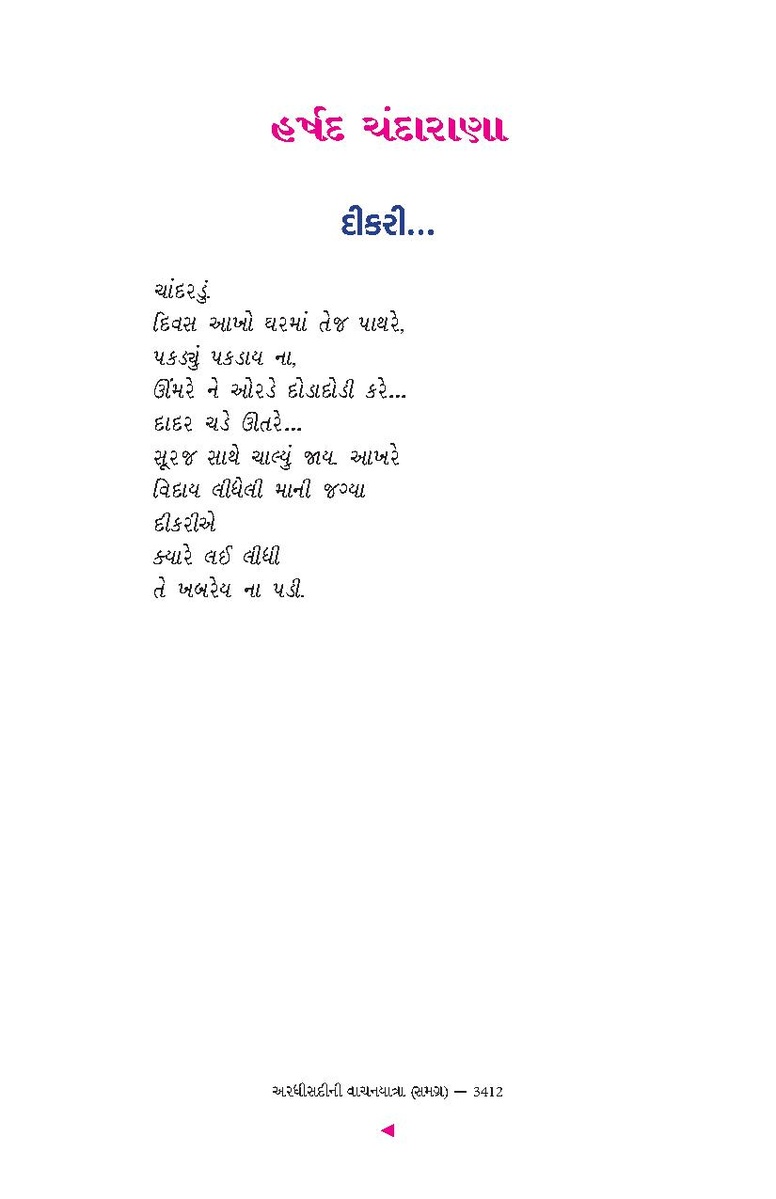 હર્ષદ ચંદારાણા
દીકરી...
ચાંદરડું.
દિવસ આખો ઘરમાં તેજ પાથરે,
પકડ્યું પકડાય ના,
ઊંમરે ને ઓરડે દોડાદોડી કરે...
દાદર ચડે ઊતરે...
સૂરજ સાથે ચાલ્યું જાય. આખરે
વિદાય લીધેલી માની જગ્યા
દીકરીએ
ક્યારે લઈ લીધી
તે ખબરેય ના પડી.
અરધીસદીની વાચનયાત્રા (સમગ્ર) — 3412